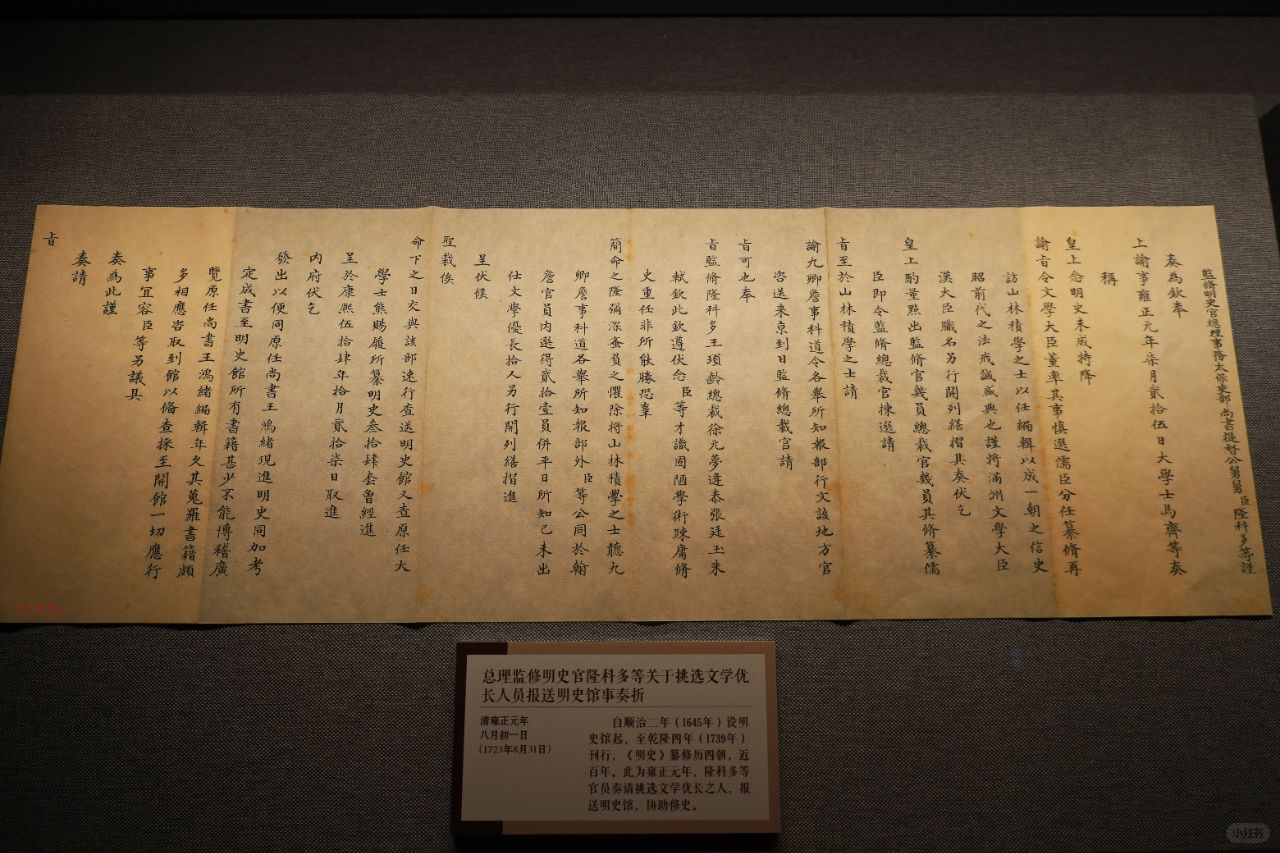 監修明史官總理事務太保吏部尚書提督公舅舅臣隆科多等謹
奏為欽奉
上諭事雍正元年柒月貳拾伍日大學士馬齊等奏
稱
皇上念明史未成特降
諭旨令文學大臣董率其事慎選儒臣分任纂脩再
訪山林積學之士以任編輯以成一朝之信史
昭前代之法戒誠盛典也謹將滿洲文學大臣
漢大臣職名另行開列繕摺具奏伏乞
皇上酌量點出監脩官幾員總裁官幾員其脩纂儒
臣即令監脩總裁官揀選請
旨至於山林積學之士請
諭九卿詹事科道令各舉所知報部行文該地方官
咨送来京到日監脩總裁官請
旨可也奉
旨監脩隆科多王頊齡總裁徐元夢逢泰張廷玉朱
軾欽此欽遵伏念臣等才識固陋學術踈庸脩
史重任非所能勝恐辜
簡命之隆彌深蚉負之懼除將山林積學之士聽九
卿詹事科道各舉所知報部外臣等公同於翰
詹官員内選得貳拾壹員併平日所知已未出
仕文學優長拾人另行開列繕摺進
呈伏候
聖裁俟
命下之日交與該部速行查送明史館又查原任大
學士熊賜履所纂明史叁拾肆套曾經進
呈於康熙伍拾肆年拾月貳拾柒日取進
内府伏乞
發出以便同原任尚書王鴻緒現進明史同加考
定成書至明史館所有書籍甚少不能博稽廣
覽原任尚書王鴻緒編輯年久其蒐羅書籍頗
多相應咨取到館以脩查採至開館一切應行
事宜容臣等另議具
奏為此謹
奏請
旨
总理监修明史官隆科多等关于挑选文学优
长人员报送明史馆事奏折
清雍正元年
八月初一日
(1723年8月31日)
自顺治二年(1645年)设明
史馆起,至乾隆四年(1739年)
刊行,《明史》纂修历四朝,近
百年。此为雍正元年,隆科多等
官员奏请挑选文学优长之人,报
送明史馆,协助修史。
小红书